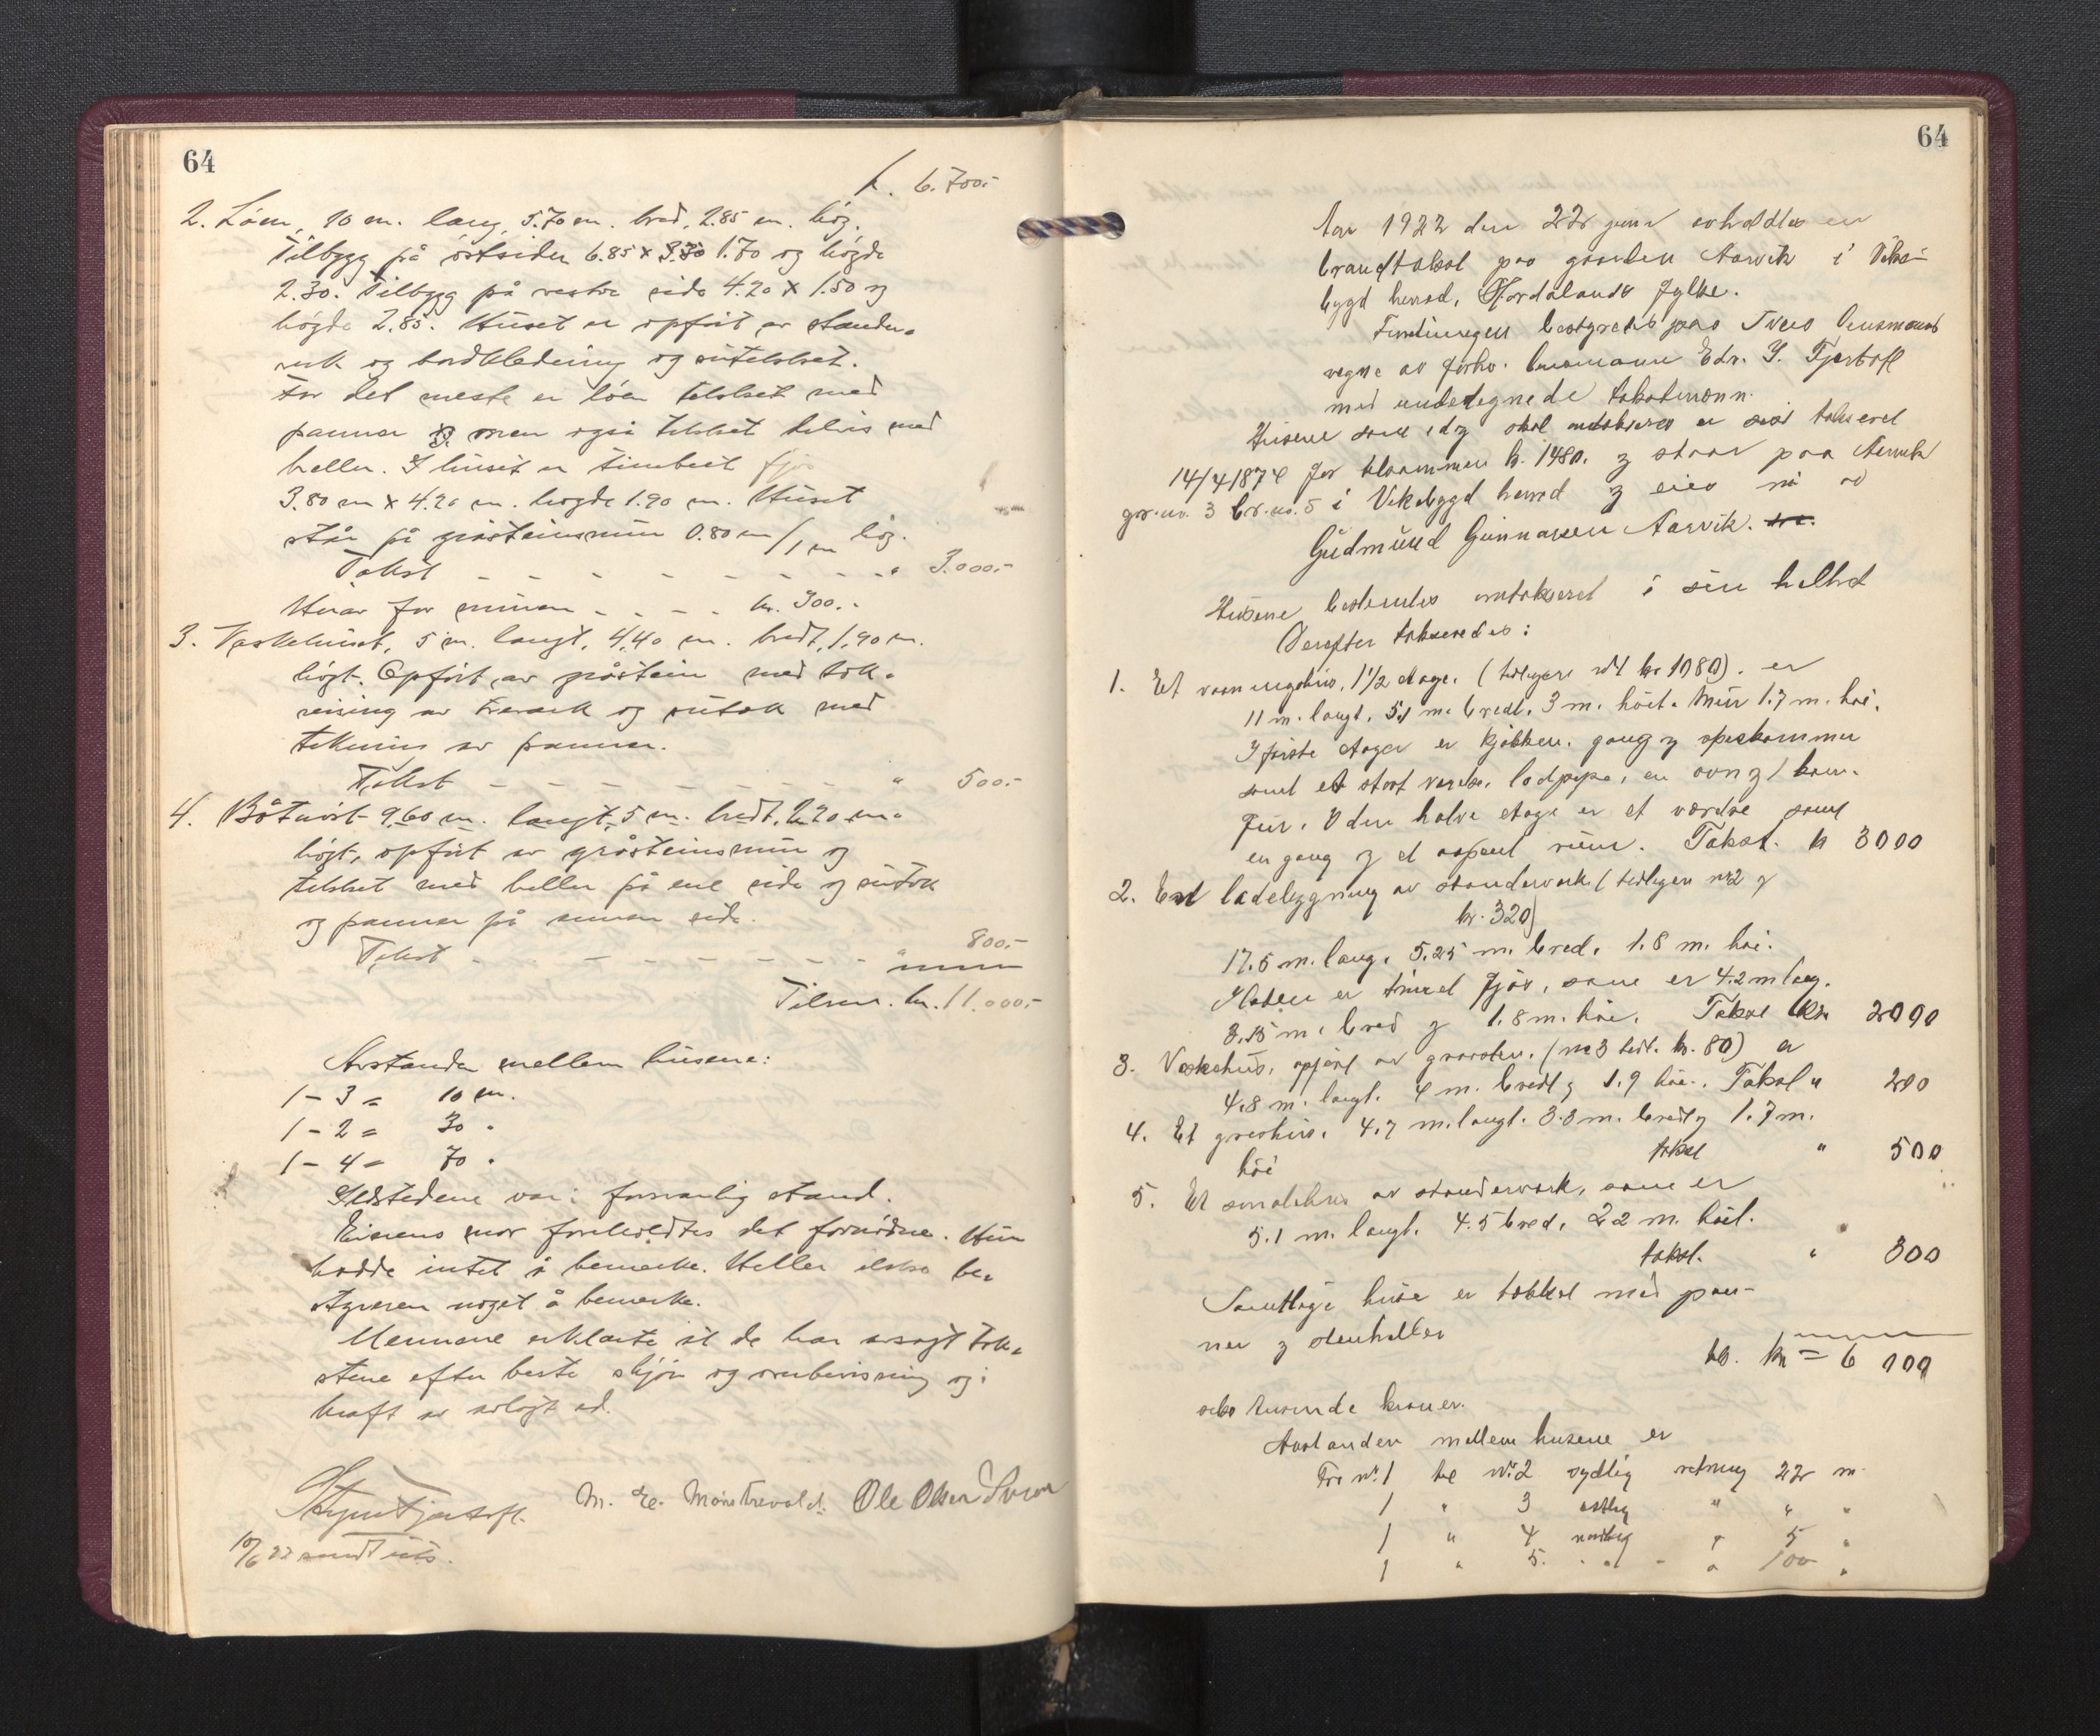 64
k. 6.700.-
2. Løen, 10 m. lang, 5.70 m. bred, 2.85 m. høg.
Tilbygg på østsiden 6.85 x 1.70 og høgde
2.30. Tilbygg på vestre side 4.20 x 1.50 og
høgde 2.85. Huset er opført av stender-
verk og bordkledning og sutekket.
For det meste er løen tekket med
panner men også tekket delvis med
heller. I huset er timbret fjøs
3.80 m x 4.20 m. høgde 1.90 m. Huset
står på gråsteinsmur 0.80 m/1 m høg.
Takst - - - - - - - - " 3.000.-
Herav for muren - - - - kr. 300.-
3. Vaskehuset, 5 m. langt, 4,40 m. bredt, 1,90 m.
høgt. Opført av gråstein med tak-
reising av treverk og sutak med
tekning av panner.
Takst - - - - - - - " 500.-
4. Båtnøst 9,60 m. langt, 5 m. bredt, 2,20 m.
høgt, opført av gråsteinsmur og
tekket med heller på ene side og sutak
og panner på annen side.
Takst - - - - - - - " 800.-
Tilsm. kr. 11.000.-
Avstanden mellem husene:
1 - 3 = 10 m.
1 - 2 = 30 "
1 - 4 = 70 "
Ildstedene var i forsvarlig stand.
Eierens mor foreholdtes det fornødne. Hun
hadde intet å bemerke. Heller ikke be-
styreren noget å bemerke.
Mennene erklærte at de har avsagt tak-
stene efter beste skjøn og overbevisning og i
kraft av avlagt ed.
M. E. Mønstrevold. Ole Olsen
10/6 22 sendt
64
Aar 1922 den 22 juni avholdtes en
brandtakst paa gaarden Aarvik i Vike-
bygd herred, Hordalands fylke.
Forretningen bestyredes paa lensmanns
vegne av forhv. lensmann Edv. Y. Tjertoft
med undertegnede takstmenn.
Husene som idag skal omtakseres er sist taksert
14/4 1874 for tilsammen kr. 1480. og staar paa Aarvik
gr. no. 3 br. no. 5 i Vikebygd herred og eies nu av
Gudmund Gunnarsen Aarvik.
Husene besluttes omtaksert i sin helhet
Derefter takseredes:
1. Et vaaningshus, 1 1/2 etage. (tidligere kr 1080). er
11 m. langt, 5,1 m. bredt, 3 m. høit. Mur 1.7 m. høi.
I første etage er kjøkken, gang og spiskammer
samt et stort værelse, lodpipe, en ovn og 1 kom-
fur. I den halve etage er et værelse samt
en gang og et aapent rum. Takst. kr 3000
2. En ladebygning av stenderverk (tidligere no 2 og
kr. 320)
17.5 m. lang, 5.25 m. bred, 1.8 m. høi.
I laden er tømret fjøs, som er 4.2 m lang.
3.15 m. bred og 1.8 m. høi. Takst kr 2000
3. Vaskehus, opført av graasten. (no 3 tidl. kr. 80) er
4.8 m. langt. 4 m. bredt og 1.9 høi. Takst " 200
4. Et grishus. 4.7 m. langt. 3.3 m. bredt og 1.7 m.
høi takst " 500
5. Et smalehus av stenderverk, som er
5.1 m. langt. 4.5 bred, 2.2 m. høit.
takst. " 300
Samtlige huse er tækket med pan-
ner og stenheller
kr = 6 000
seks tusende kroner.
Avstanden mellem husene er
Fra no. 1 til no. 2 sydlig retning 22 m.
1 " 3 østlig " " "
1 " 4 nordlig " 5 "
1 " 5. " " 100 "